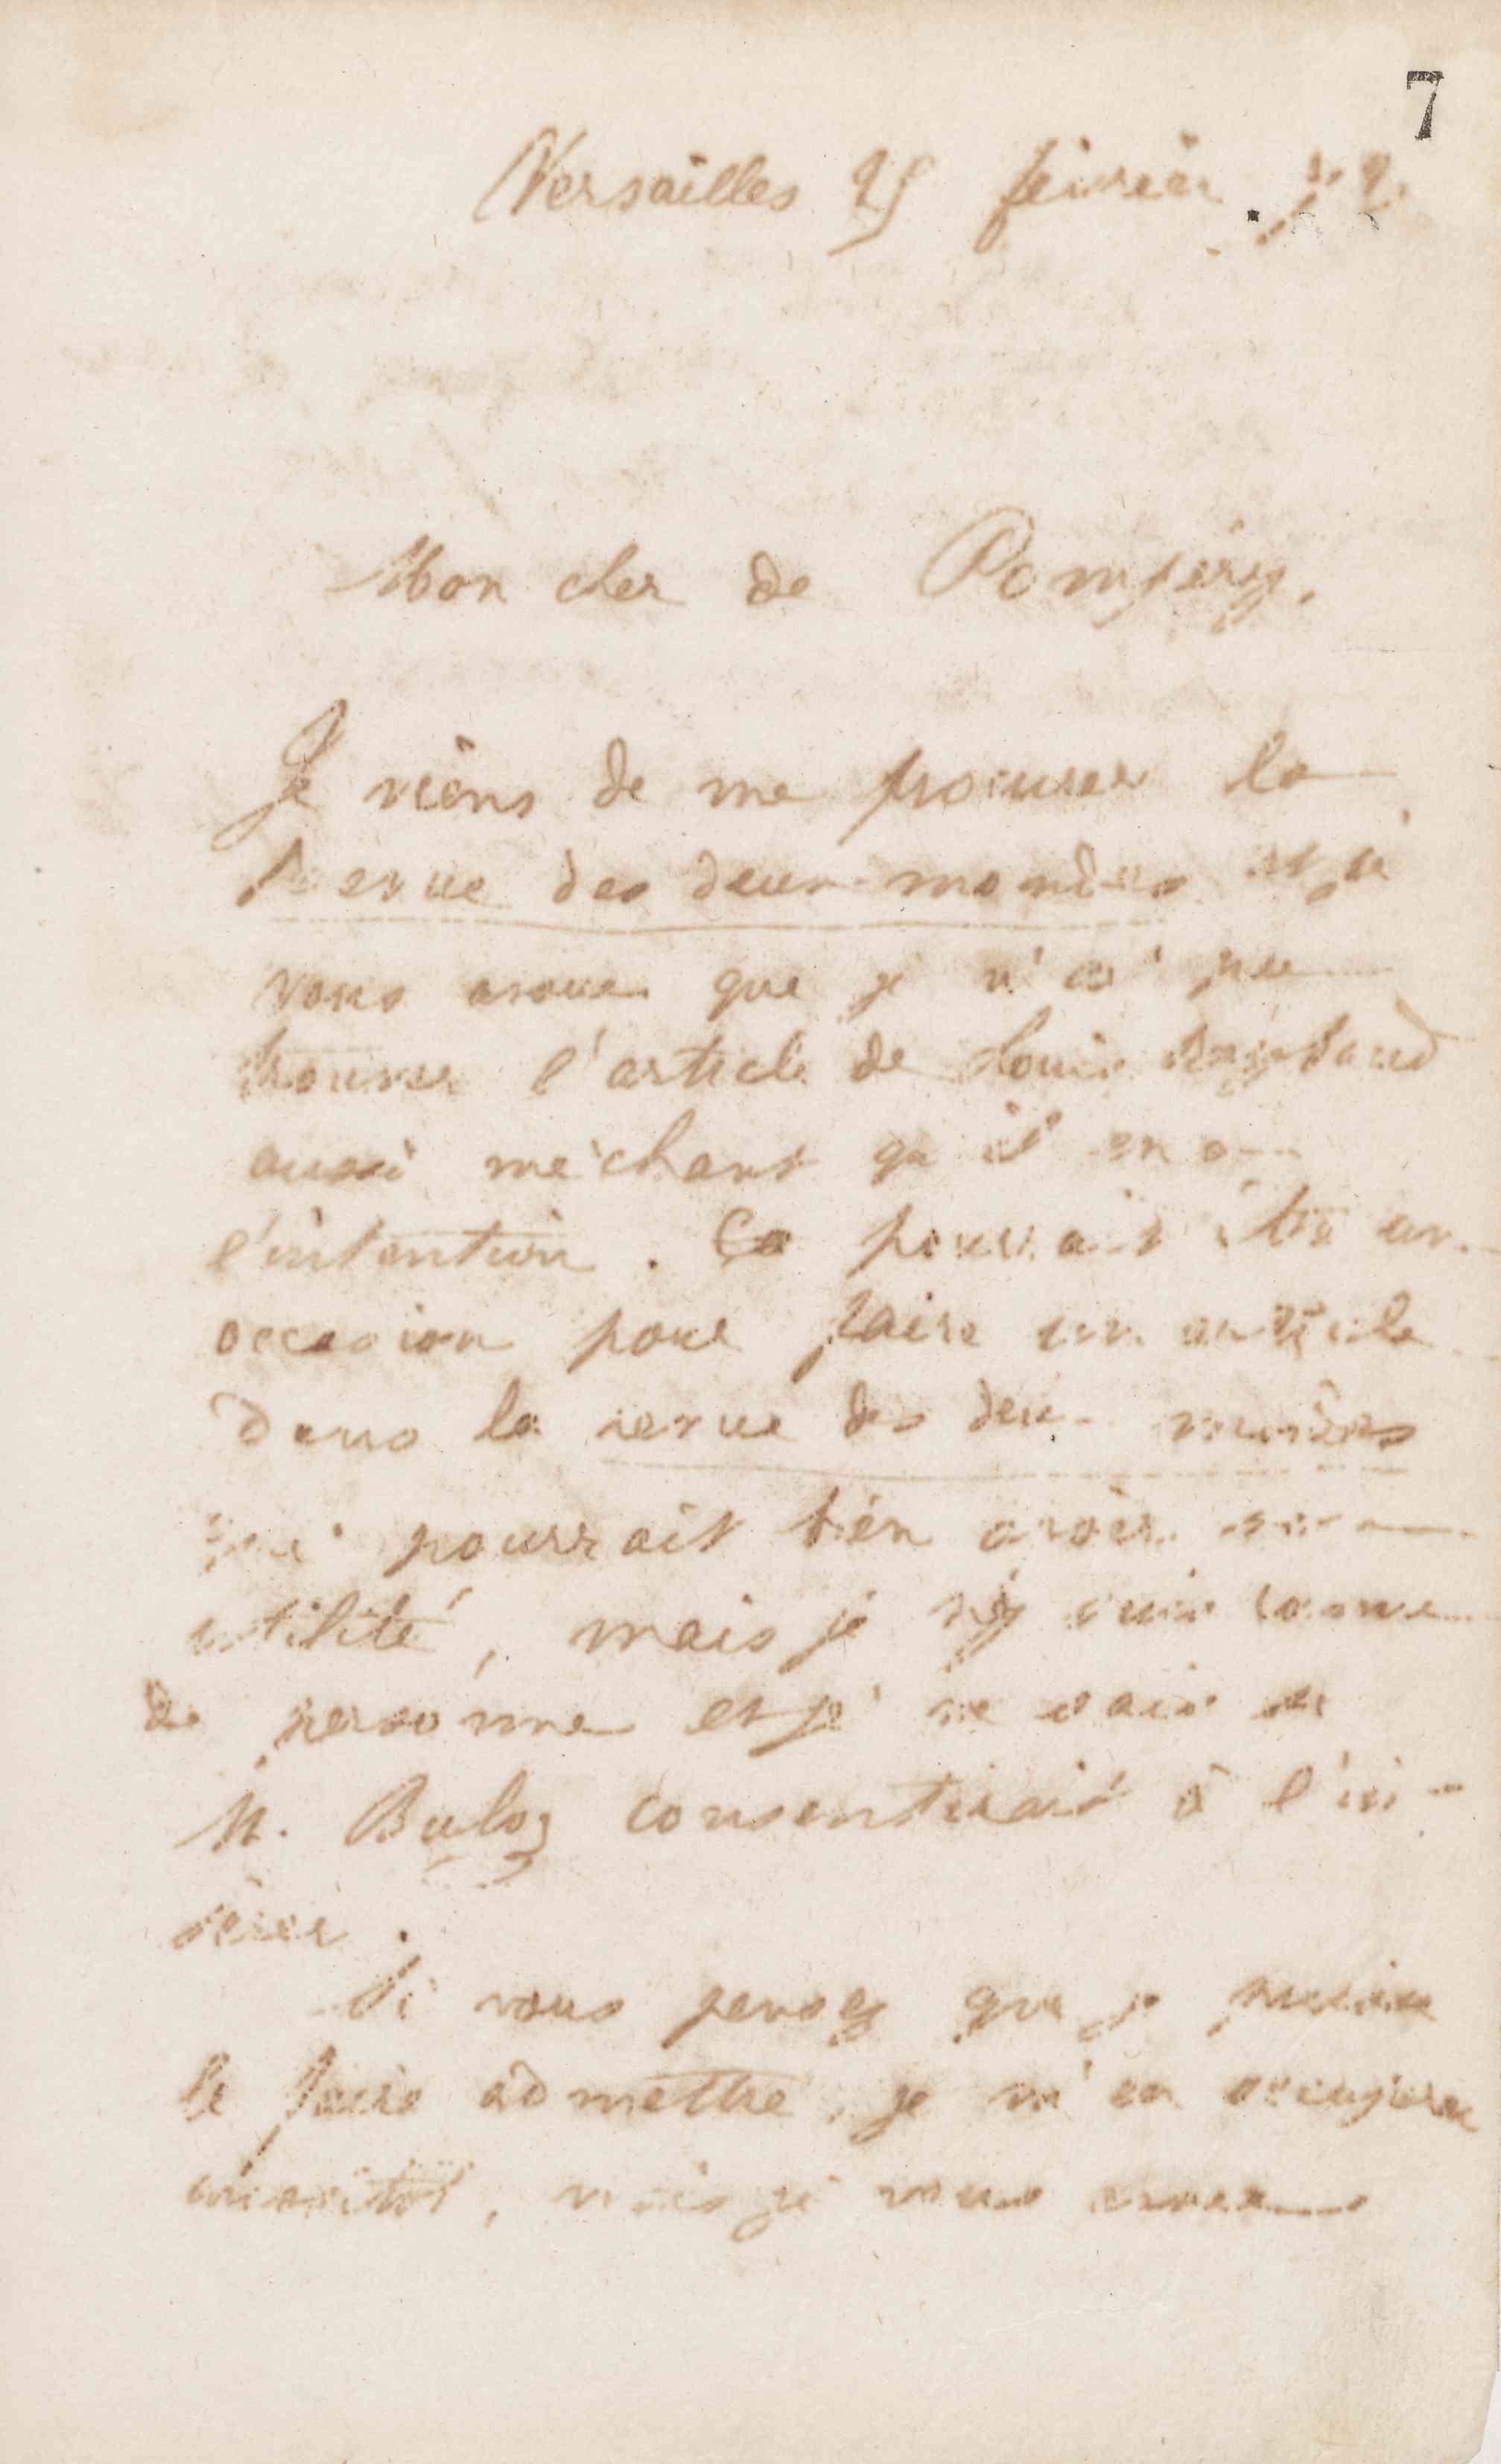 7
Versailles 25 février 72.
Mon cher de Pompéry,
Je viens de me procurer la
Revue des deux-mondes et je
vous avoue que je n'ai pu
trouver l'article de Louis Reybaud
aussi méchant qu'il en a
l'intention. Ce pourrait être un
occasion pour faire un article
dans la revue des deux mondes
qui pourrait bien avoir son
utilité, mais je n'y suis connu
de personne et je ne sais si
M. Buloz consentirait à l'in-
sérer.
Si vous pensez que je puisse
le faire admettre, je m'en occuperai
aussitôt, mais je vous avoue